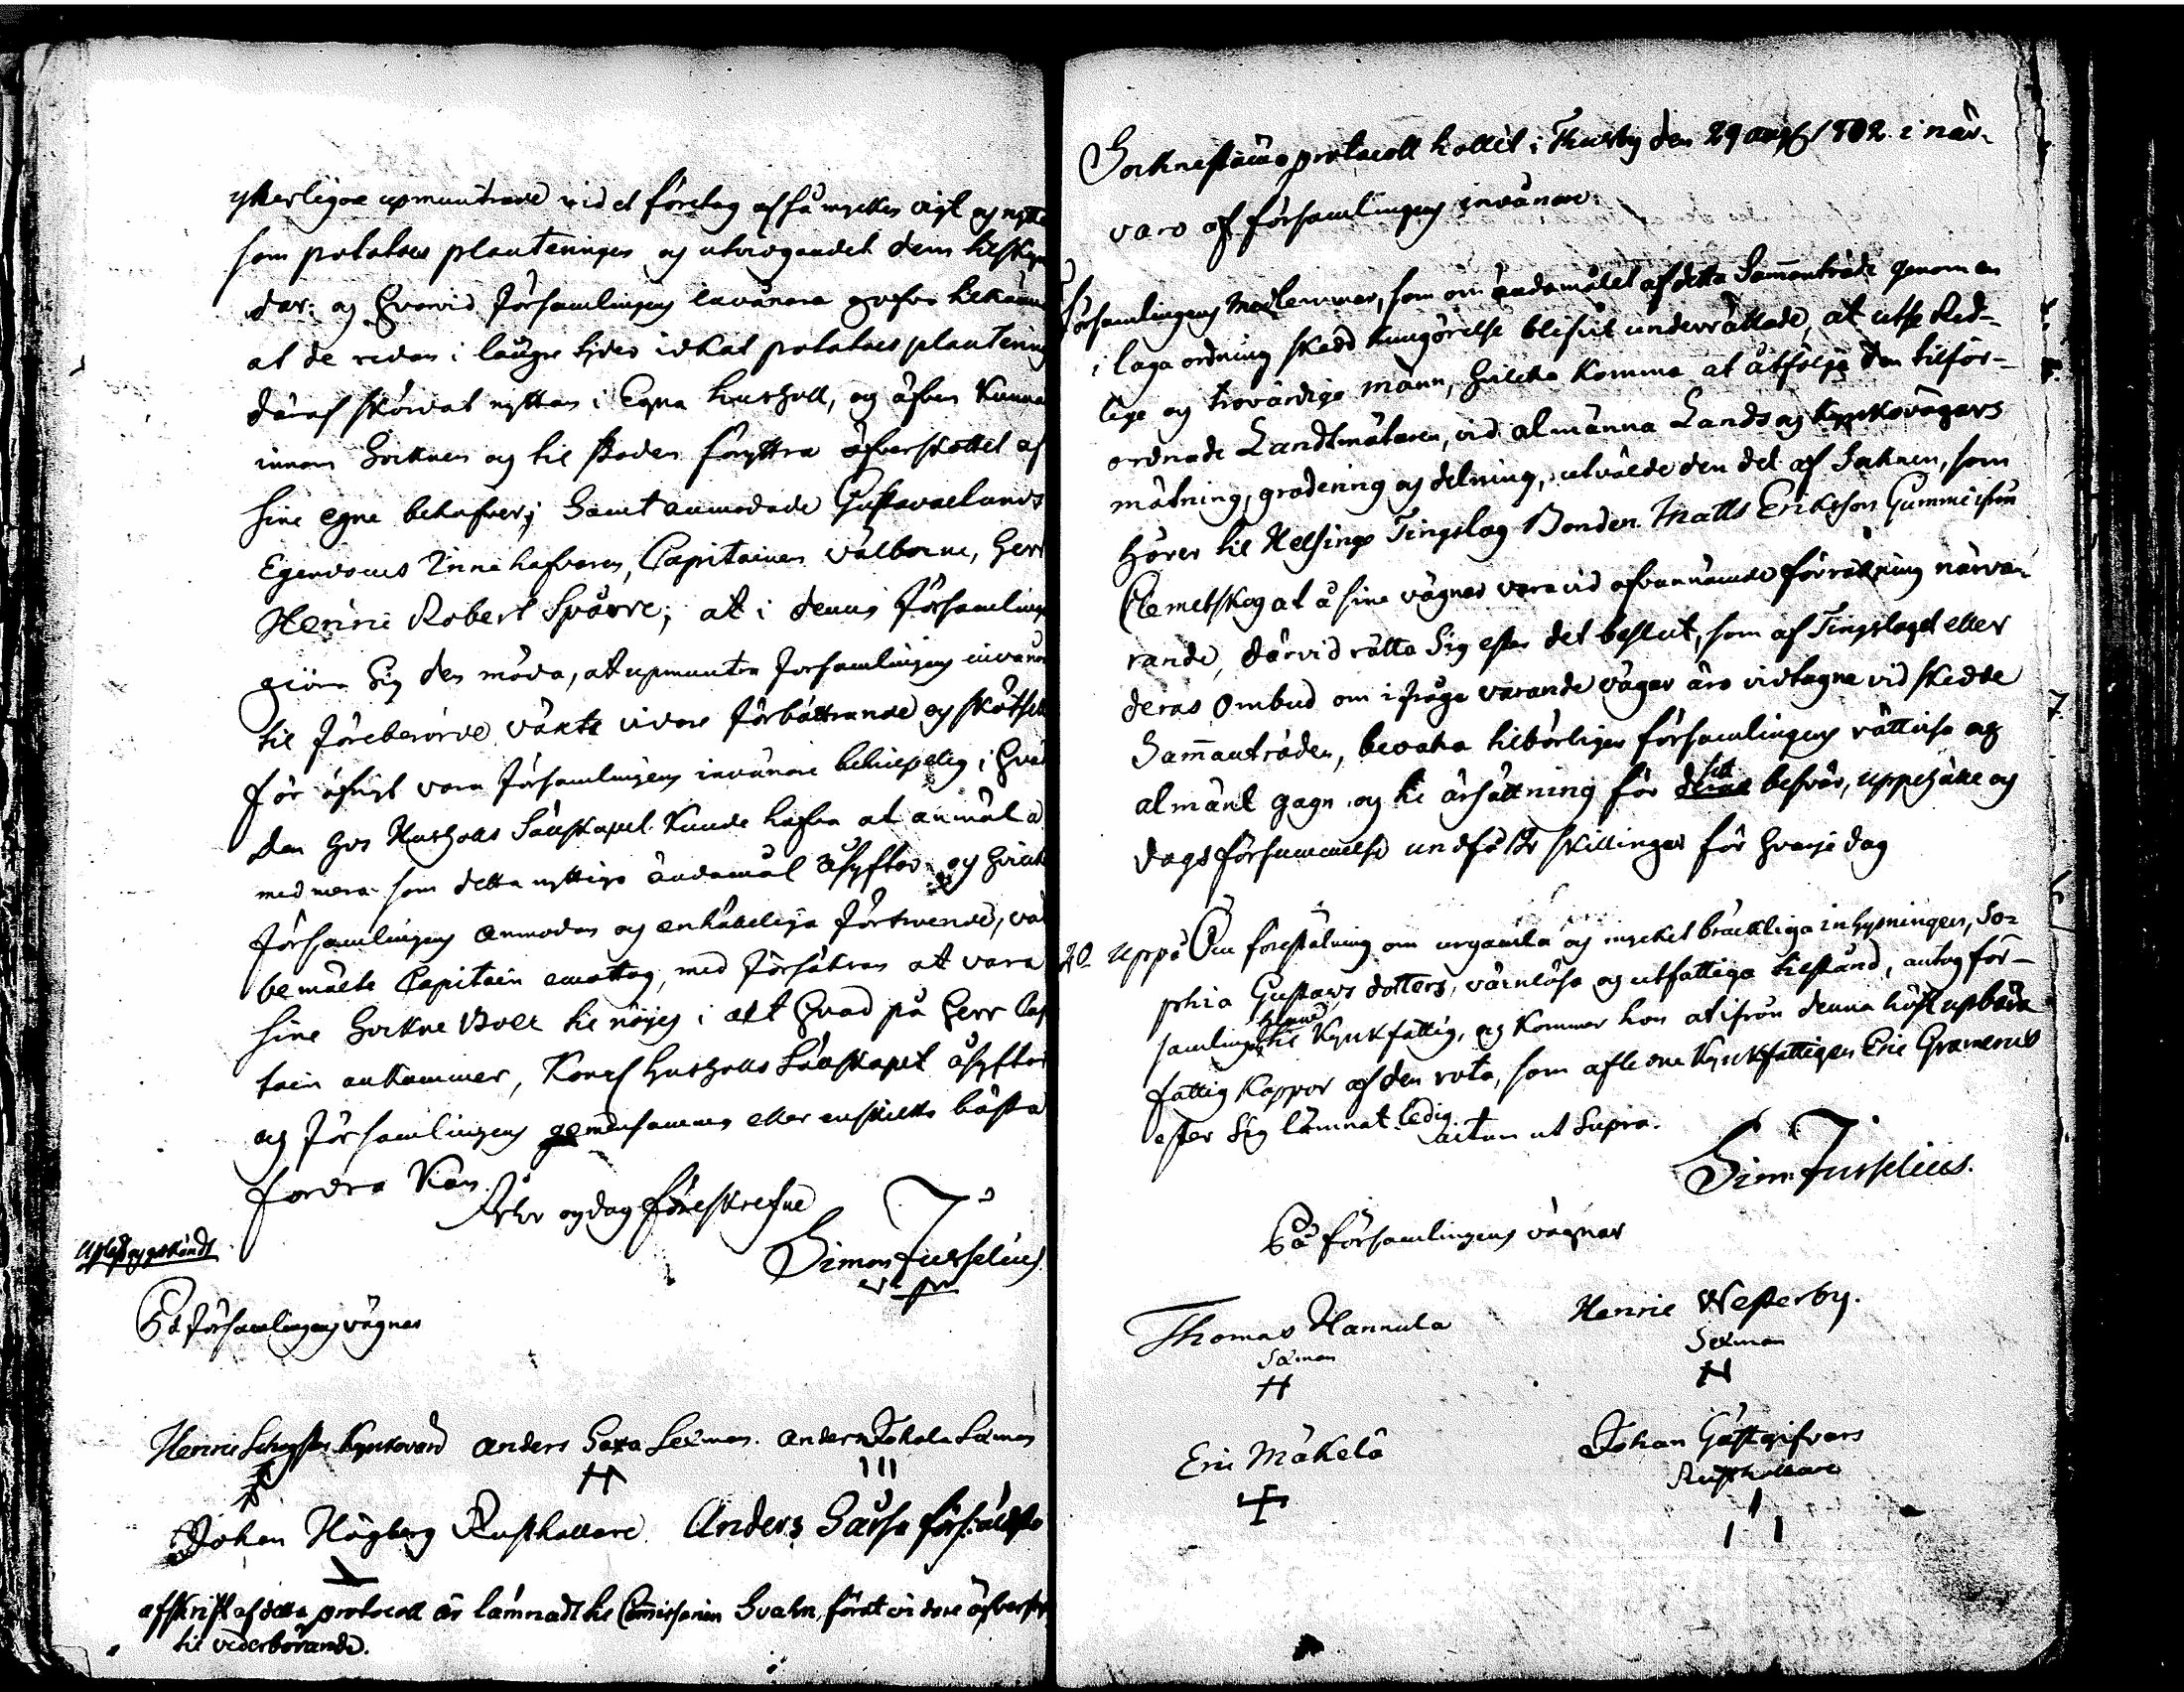 ytterligare upmuntrade vid et företag af så mycken vigt og nytta
som potatoes planteringen og utvidgandet dem tilskyn
dar: og Hvarvid Församlingens invånare gofvo tilkänna
at de redan i längre tider idkat potatoes plantering
däraf skördat nyttan i Egna hushåll, og äfven kunna
innom Socknen og til staden föryttra öfverskottet af
sine egne behofver; Samt anmodade Gustavaelunds
Egendoms Innehafvaren, Capitainen välborne, Herr
Henric Robert Spårre; at i denna Församling
giöra Sig den möda, at upmuntra Församlingens invånare
til föreberörde växts vidare Förbättrande og skötsel
för öfrigt vara Församlingens invånare behiepelig i Hvad
den Hos Hushålls Sällskapet kunde hafva at anmäla
med mera som detta nyttiga ändamål åsyftar og Hvilket
Församlingens anmodan og enhälleliga Förtroende, väl
bemälte Capitain emottog, med Försäkran at vara
sine Sockne Boer til nöjes i alt Hvad på Herr Cap
tain ankommer, Kongl Hushålls Sällskapet åsyftar
og Församlingens gemensamma eller enskilta bästa
fordra kan.
År og dag föreskrefne
Simon Jusselius
Uplest og godkändt
På Församlingens vägnar
Henric Kyrkovärd Anders Saxa Sexman. Anders Jokela Sexman
Johan Högberg Rusthållare. Anders
afskrift af detta protocoll är lämnadt til Commissarien Svahn, för at vidare
til vederbörande.
Socknestämo protocoll hollit i Thusby den 29 aug 1802 i när-
varo af församlingens invånare.
Församlingens Medlemmar, som om ändamålet af detta Sammanträde genom en
i laga ordning skedd kungörelse blifvit underrättade, at utse Red-
lige og trovärdige Männ, Hvilka komma at åtfölja den tilför-
ordnade Landtmätaren, vid almänna Lands og kyrkovägars
mätning, gradering og delning, utvalde den del af Socknen, som
hörer til Helsinge Tingslag Bonden Matts Eriksson Gummi ifrån
Clemetskog at å sine vägnar vara vid ofvannämde förrättning närva-
rande, därvid rätta Sig efter det beslut, som af Tingslaget eller
deras Ombud om i fråga varande vägar äro vidtagne vid skedde
Sammanträden, bevaka tilbörligen församlingens rättvisa og
almänt gagn og til ärsättning för sitt besvär, uppehälle og
dagsförsummelse undfå skillingar för Hvarje dag
2o Uppå föreställning om urgamla og mycket bräckliga inhysningen, So-
phia Gustavs dotters, värnlösa og utfattiga tilstånd, antog för-
samlingen henne til Kyrkfattig, og kommer hon at ifrån denna höst upbära
fattig kappor af den rota, som afledne kyrkfattigen Eric Gramerus
efter Sig lämnat ledig. actum ut Supra.
Simon Jusselius.
På församlingens vägnar
Thomas Hannula
Sexman
Henric Westerby.
Sexman
Eric Mäkelä
Johan Gästgifvars
Rusthållare